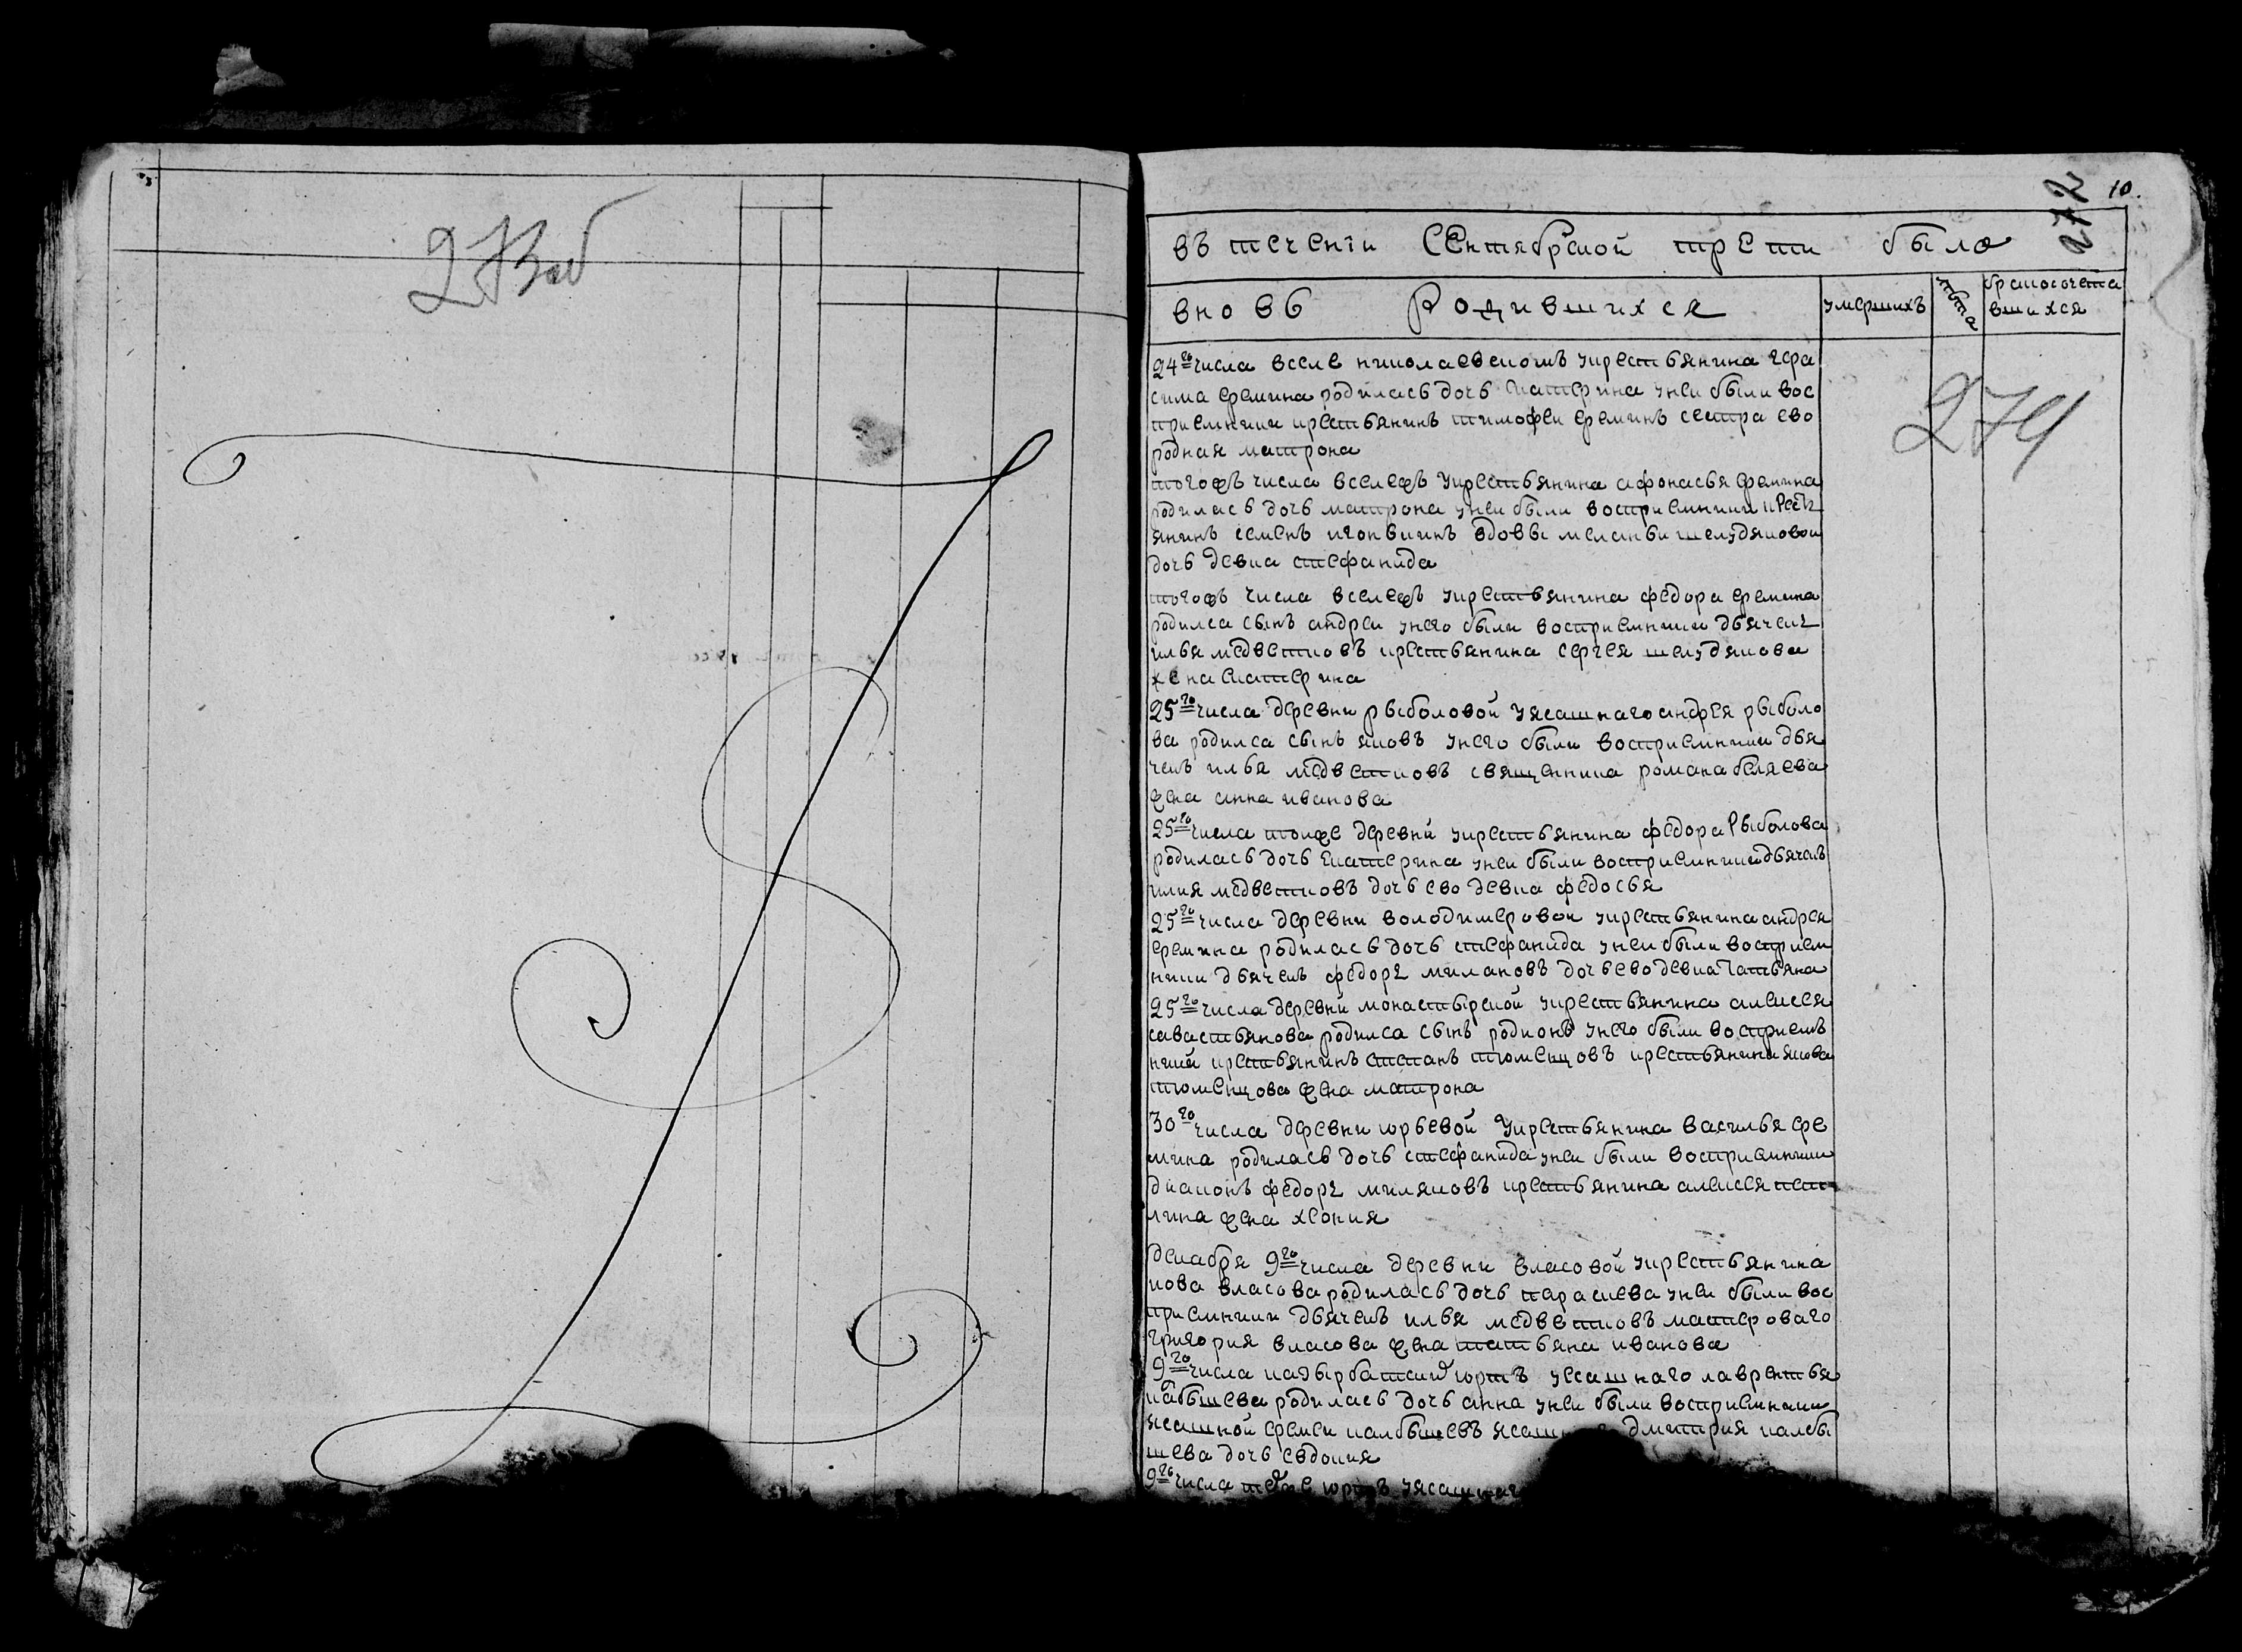 273 об
272
10.
въ течении сентябрской трети было
вновь Родившихся
умершихъ
лѣта
бракосочета
вшихся
274
24го числа вселе николаевскомъ укрестьянина гера
сима еремина родилась дочь катерина унеи были вос
приемники крестьянинъ тимофеи ереминъ сестра ево
родная матрона
тогожъ числа всележъ укрестьянина афонасья еремина
родилась дочь матрона унеи были восприемники крестъ
янинъ семенъ вдовы меланьи шелудяковои
дочь девка стефанида
тогожъ числа всележъ укрестьянина федора еремина
родилса сынъ андреи унего были восприемники дьячекъ
илья медветковъ крестьянина сергея шелудякова
жена катерина
25го числа деревни рыболовой уясашнаго андрея рыболо
ва родилса сынъ яковъ унего были восприемники дья
чекъ илья медветковъ священника романа беляева
жена анна иванова
25го числа тоиже деревни укрестьянина федора Рыболова
родилась дочь катерина унеи были восприемники дьячекъ
илия медветковъ дочь ево девка федосья
25го числа деревни володимеровой укрестьянина андрея
еремина родилась дочь стефанида унеи были восприем
ники дьячекъ федоръ милаковъ дочь ево девка татьяна
25го числа деревни монастырской укрестьянина алексея
савастьянова родилса сынъ родионъ унего были восприемъ
ники крестьянинъ степанъ тюменцовъ крестьянина якова
тюменцова жена матрона
30го числа деревни юрьевой укрестьянина василья ере
мина родилась дочь стефанида унеи были восприемники
диаконъ федоръ миляковъ крестьянина алексея пет
лина жена хеония
декабря 9го числа деревни власовой укрестьянина
иова власова родилась дочь параскева унеи были вос
приемники дьячекъ илья медветковъ мастероваго
григория власова жена татьяна иванова
9го числа казырбатских юртъ уесашнаго лаврентья
кабышева родилась дочь анна унеи были восприемники
ясашной еремеи калбышевъ дмитрия калбы
шева дочь евдокия
9го числа техже юртъ